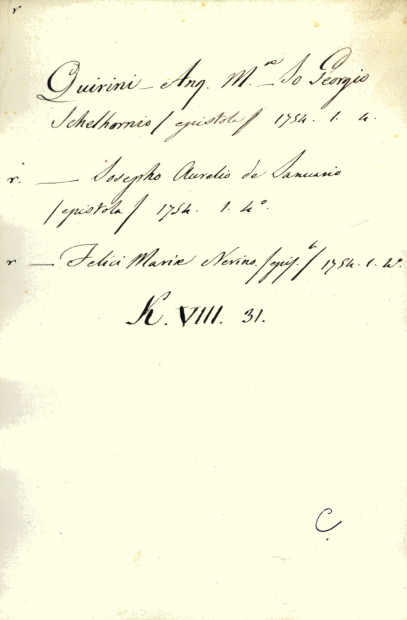 r
Quirini – Ang. M.ae – Io Georgio
Schelhornio / epistola / 1754. 1. 4.
r. — Iosepho Aurelio de Ianuario
/ epistola / 1754. 1. 4°.
r — Felici Mariæ Nerino. / epis.la / 1754. 1. 4°.
K. VIII. 31.
C.